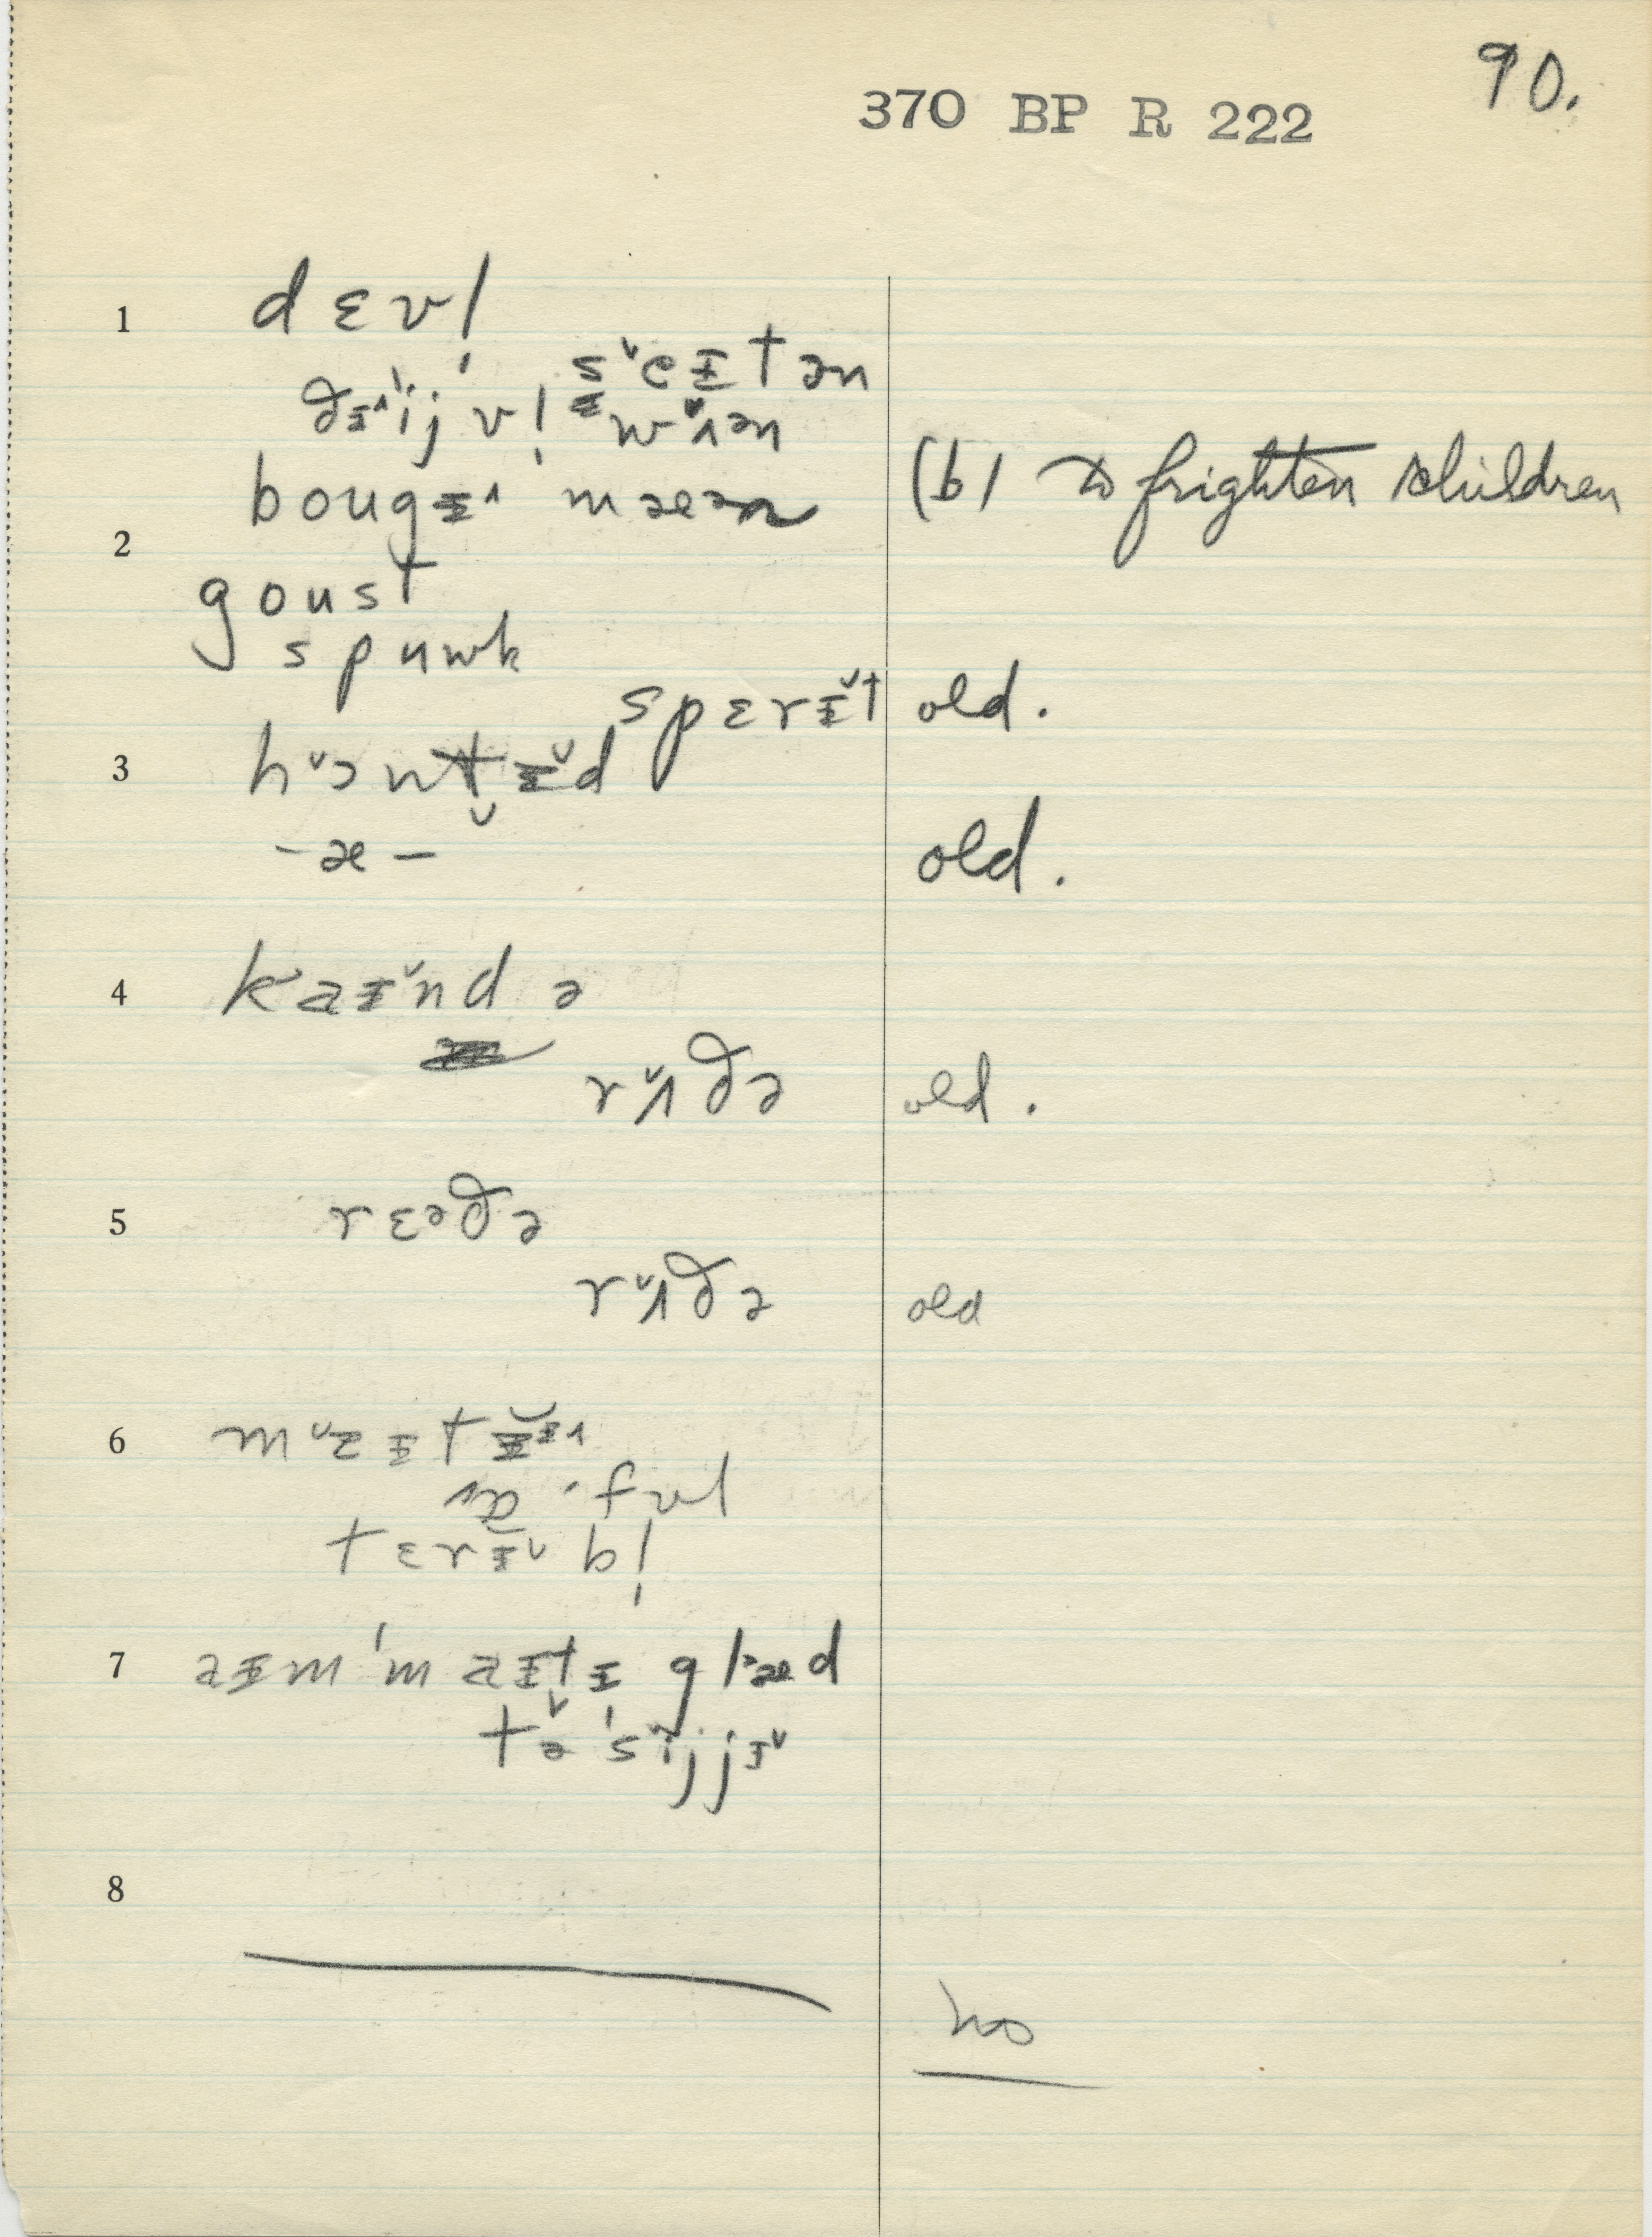 90.
370 BP R 222
1 dɛvl̩
s˅eɪtən
ðɪ˄ˈijvl̩ w˅ʌən
bougɪ˄ mæən (b) to frighten children
2
goust
spuwk
spɛrɪ˅t old.
3 h˅ɔnt̬ɪ˅d
-æ- old.
4 kaɪ˅nd ə
r˅ʌðə old.
5 rɛəðə
r˅ʌðə old
6 m˅ɪ
ɔ·fʊl
tɛrɪ˅bl̩
7 aɪmˈmaɪt̬ɪ gl˃æd
tə ˈs˅ijjɪ˅
8
no